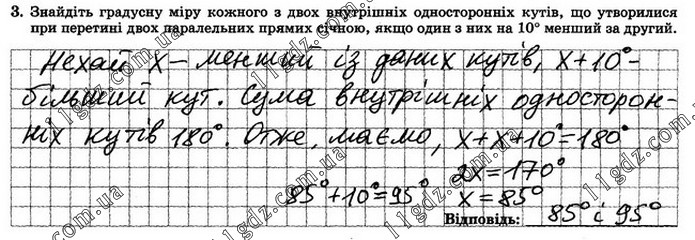 3. Знайдіть градусну міру кожного з двох внутрішніх односторонніх кутів, що утворилися
при перетині двох паралельних прямих січною, якщо один з них на 10° менший за другий.
Нехай x – менший із даних кутів, x+10° –
більший кут. Сума внутрішніх односторон-
ніх кутів 180°. Отже, маємо, x+x+10°=180°
2x=170°
85°+10°=95° x=85°
Відповідь: 85° і 95°
11gdz.com.ua